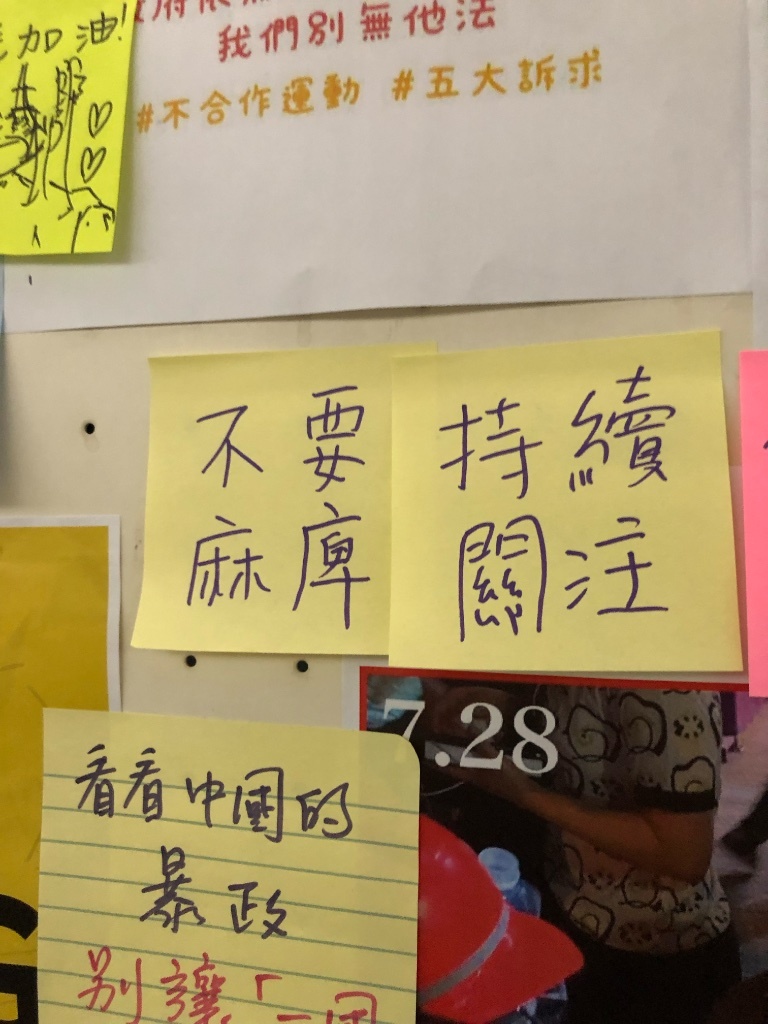 加油!
我們別無他法
#不合作運動 #五大訴求
不要
麻庳
持續
關注
7.28
看看中國的
暴政
別讓「一國